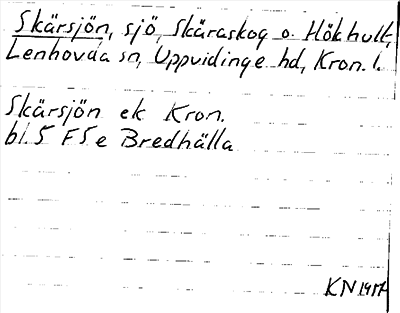 Skärsjön, sjö, Skäraskog o. Hökhult,
Lenhovda sn, Uppvidinge hd, Kron. l.
Skärsjön ek Kron.
bl. 5 F5e Bredhälla
KN 1917